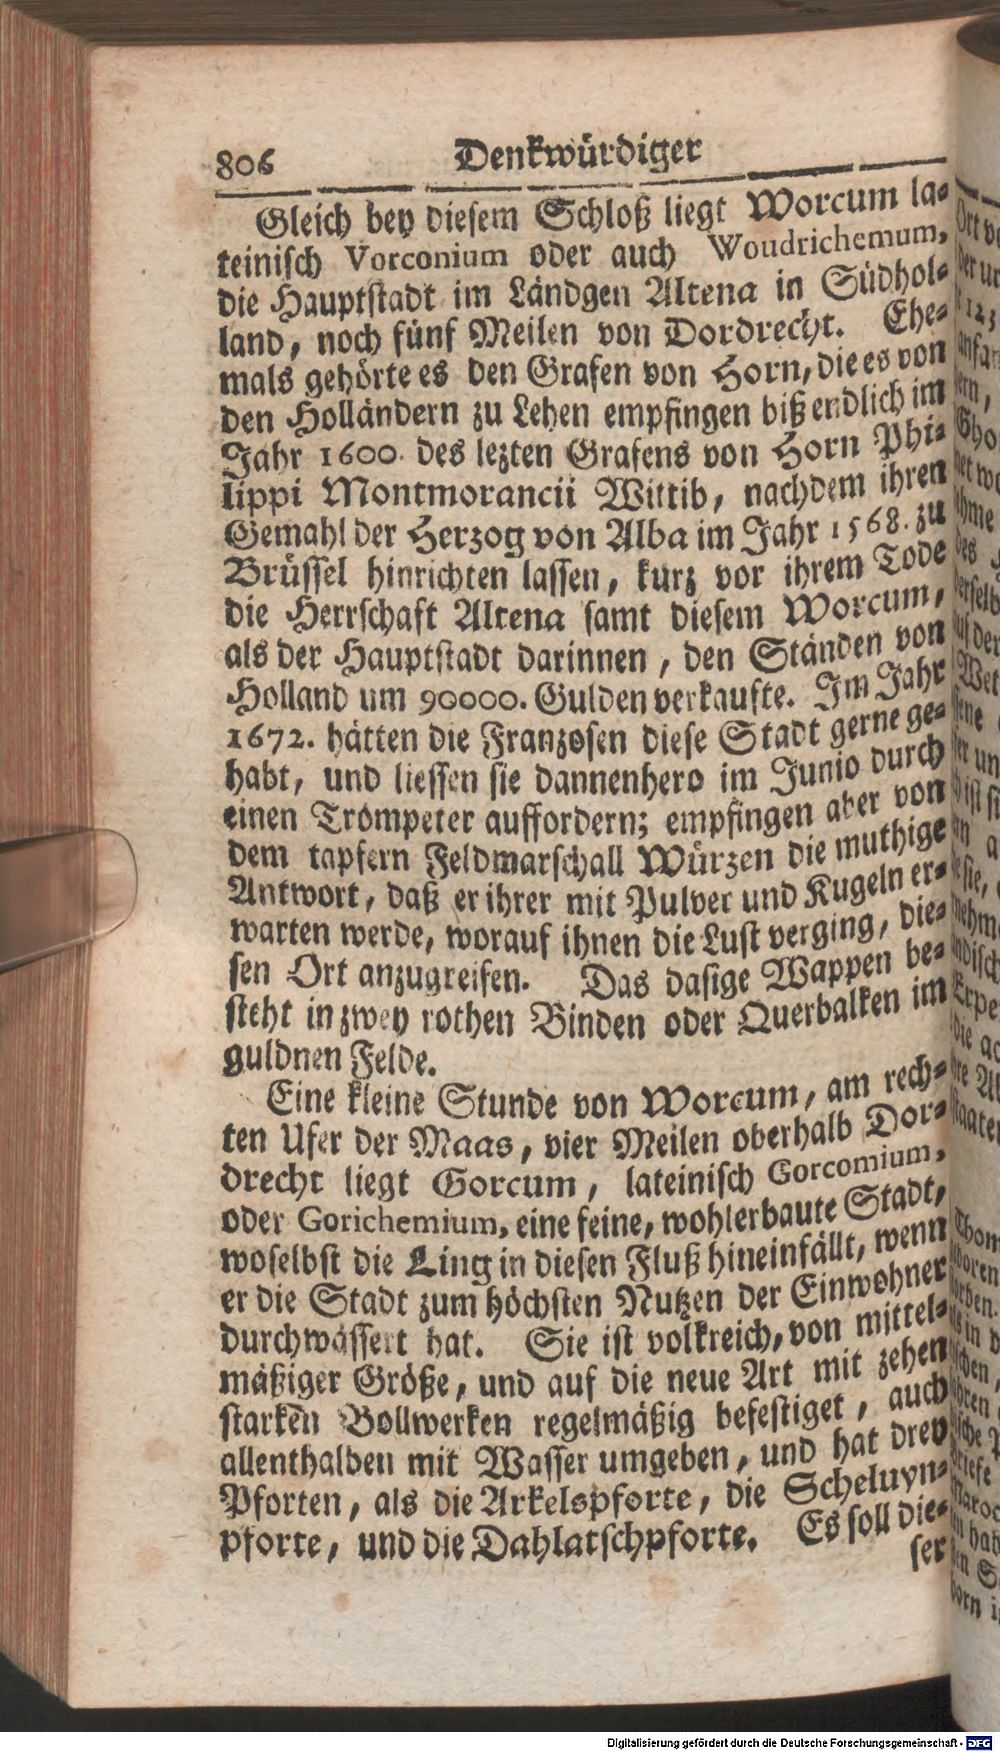 806 Denkwürdiger
Gleich bey diesem Schloß liegt Worcum la-
teinisch Vorconium oder auch Woudrichemum,
die Hauptstadt im Ländgen Altena in Südhol-
land, noch fünf Meilen von Dordrecht. Ehe-
mals gehörte es den Grafen von Horn, die es von
den Holländern zu Lehen empfingen biß endlich im
Jahr 1600. des lezten Grafens von Horn Phi-
lippi Montmorancii Wittib, nachdem ihren
Gemahl der Herzog von Alba im Jahr 1568. zu
Brüssel hinrichten lassen, kurz vor ihrem Tode
die Herrschaft Altena samt diesem Worcum,
als der Hauptstadt darinnen, den Ständen von
Holland um 90000. Gulden verkaufte. Im Jahr
1672. hätten die Franzosen diese Stadt gerne ge-
habt, und liessen sie dannenhero im Junio durch
einen Trompeter auffordern; empfingen aber von
dem tapfern Feldmarschall Würzen die muthige
Antwort, daß er ihrer mit Pulver und Kugeln er-
warten werde, worauf ihnen die Lust verging, die-
sen Ort anzugreifen. Das dasige Wappen be-
steht in zwey rothen Binden oder Querbalken im
guldnen Felde.
Eine kleine Stunde von Worcum, am rech-
ten Ufer der Maas, vier Meilen oberhalb Dor-
drecht liegt Gorcum, lateinisch Gorcomium,
oder Gorichemium, eine feine, wohlerbaute Stadt,
woselbst die Ling in diesen Fluß hineinfällt, wenn
er die Stadt zum höchsten Nutzen der Einwohner
durchwässert hat. Sie ist volkreich, von mittel-
mäßiger Größe, und auf die neue Art mit zehen
starken Bollwerken regelmäßig befestiget, auch
allenthalben mit Wasser umgeben, und hat drey
Pforten, als die Arkelspforte, die Scheluyn-
pforte, und die Dahlatschpforte. Es soll die-
ser
Digitalisierung gefördert durch die Deutsche Forschungsgemeinschaft - DFG